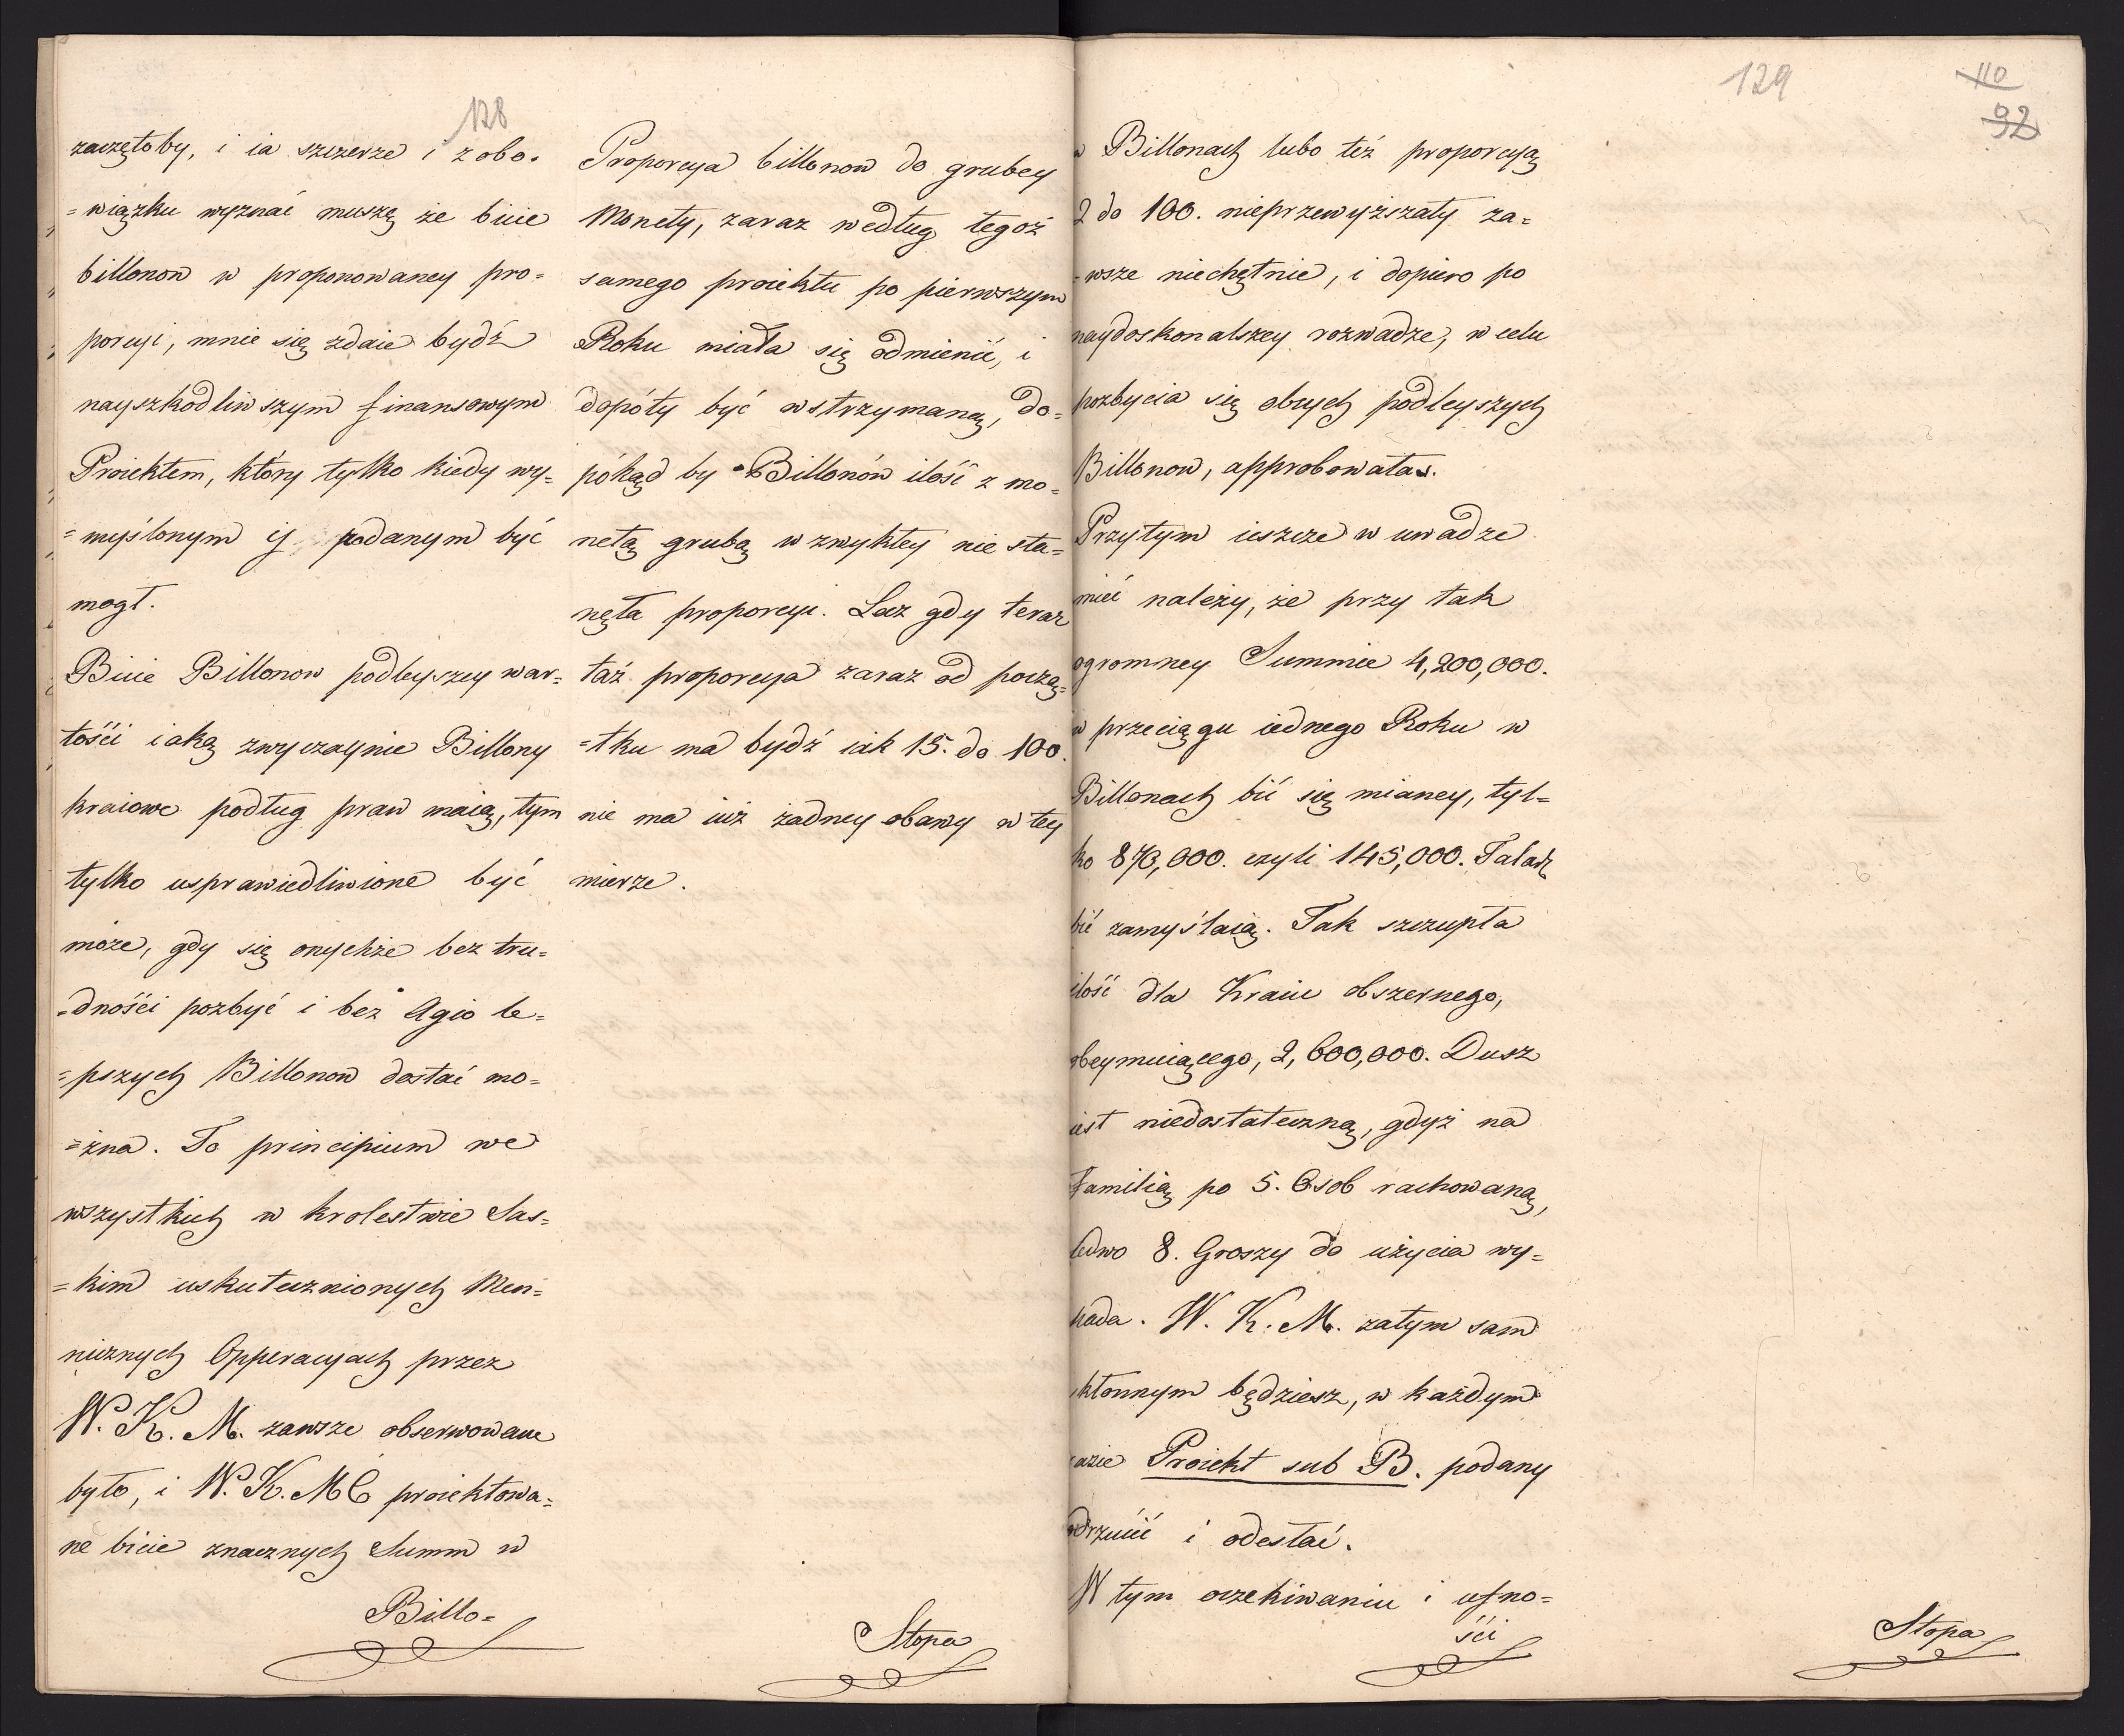 128
zaczętoby, i ia szczerze i z obo=
=wiązku wyznać muszę że bicie
billonow w proponowaney pro=
porcyi, mnie się zdaie bydź
nayszkodliwszym finansowym
Proiektem, który tylko kiedy wy=
=myślonym y podanym być
mogł.
Bicie Billonow podleyszey war=
tośći iaką zwyczaynie Billony
kraiowe podług praw maią, tym
tylko usprawiedliwione być
może, gdy się onychże bez tru=
=dnośći pozbyć i bez Agio le=
=pszych Billonow dostać mo=
=żna. To principium we
wszystkich w krolestwie Sas=
=kim uskutecznionych Men=
nicznych Opperacyach przez
W. K. M. zawsze obserwowane
było, i W. K. M proiektowa=
ne bicie znacznych Summ w
Billo=
Proporcya billonow do grubey
Monety, zaraz według tegoż
samego proiektu po pierwszym
Roku miała się odmienić, i
dopóty być wstrzymaną, do=
pókąd by Billonów ilość z mo=
netą grubą w zwykłey nie sta=
nęła proporcyi. Lecz gdy teraz
taż proporcya zaraz od począ=
=tku ma bydź iak 15. do 100.
nie ma iuż żadney obawy w tey
mierze.
Stopa
129
110
92
w Billonach lubo też proporcyą
2 do 100. nieprzewyższały za=
=wsze niechętnie, i dopiero po
naydoskonalszey rozwadze, w celu
pozbycia się obcych podleyszych
Billonow, approbowałaś.
Przytym ieszcze w uwadze
mieć należy, że przy tak
ogromney Summie 4,200,000.
w przeciągu iednego Roku w
Billonach bić się mianey, tyl=
ko 870,000. czyli 145,000. Talar.
bić zamyślaią. Tak szczupła
ilość dla Kraiu obszernego,
obeymuiącego, 2,600,000. Dusz
iest niedostateczną, gdyż na
Familią po 5. Osob rachowaną,
ledwo 8. Groszy do użycia wy=
pada. W. K. M. zatym sam
skłonnym będziesz, w każdym
razie Proiekt sub B. podany
odrzucić i odesłać.
W tym oczekiwaniu i ufno=
śći
Stopa